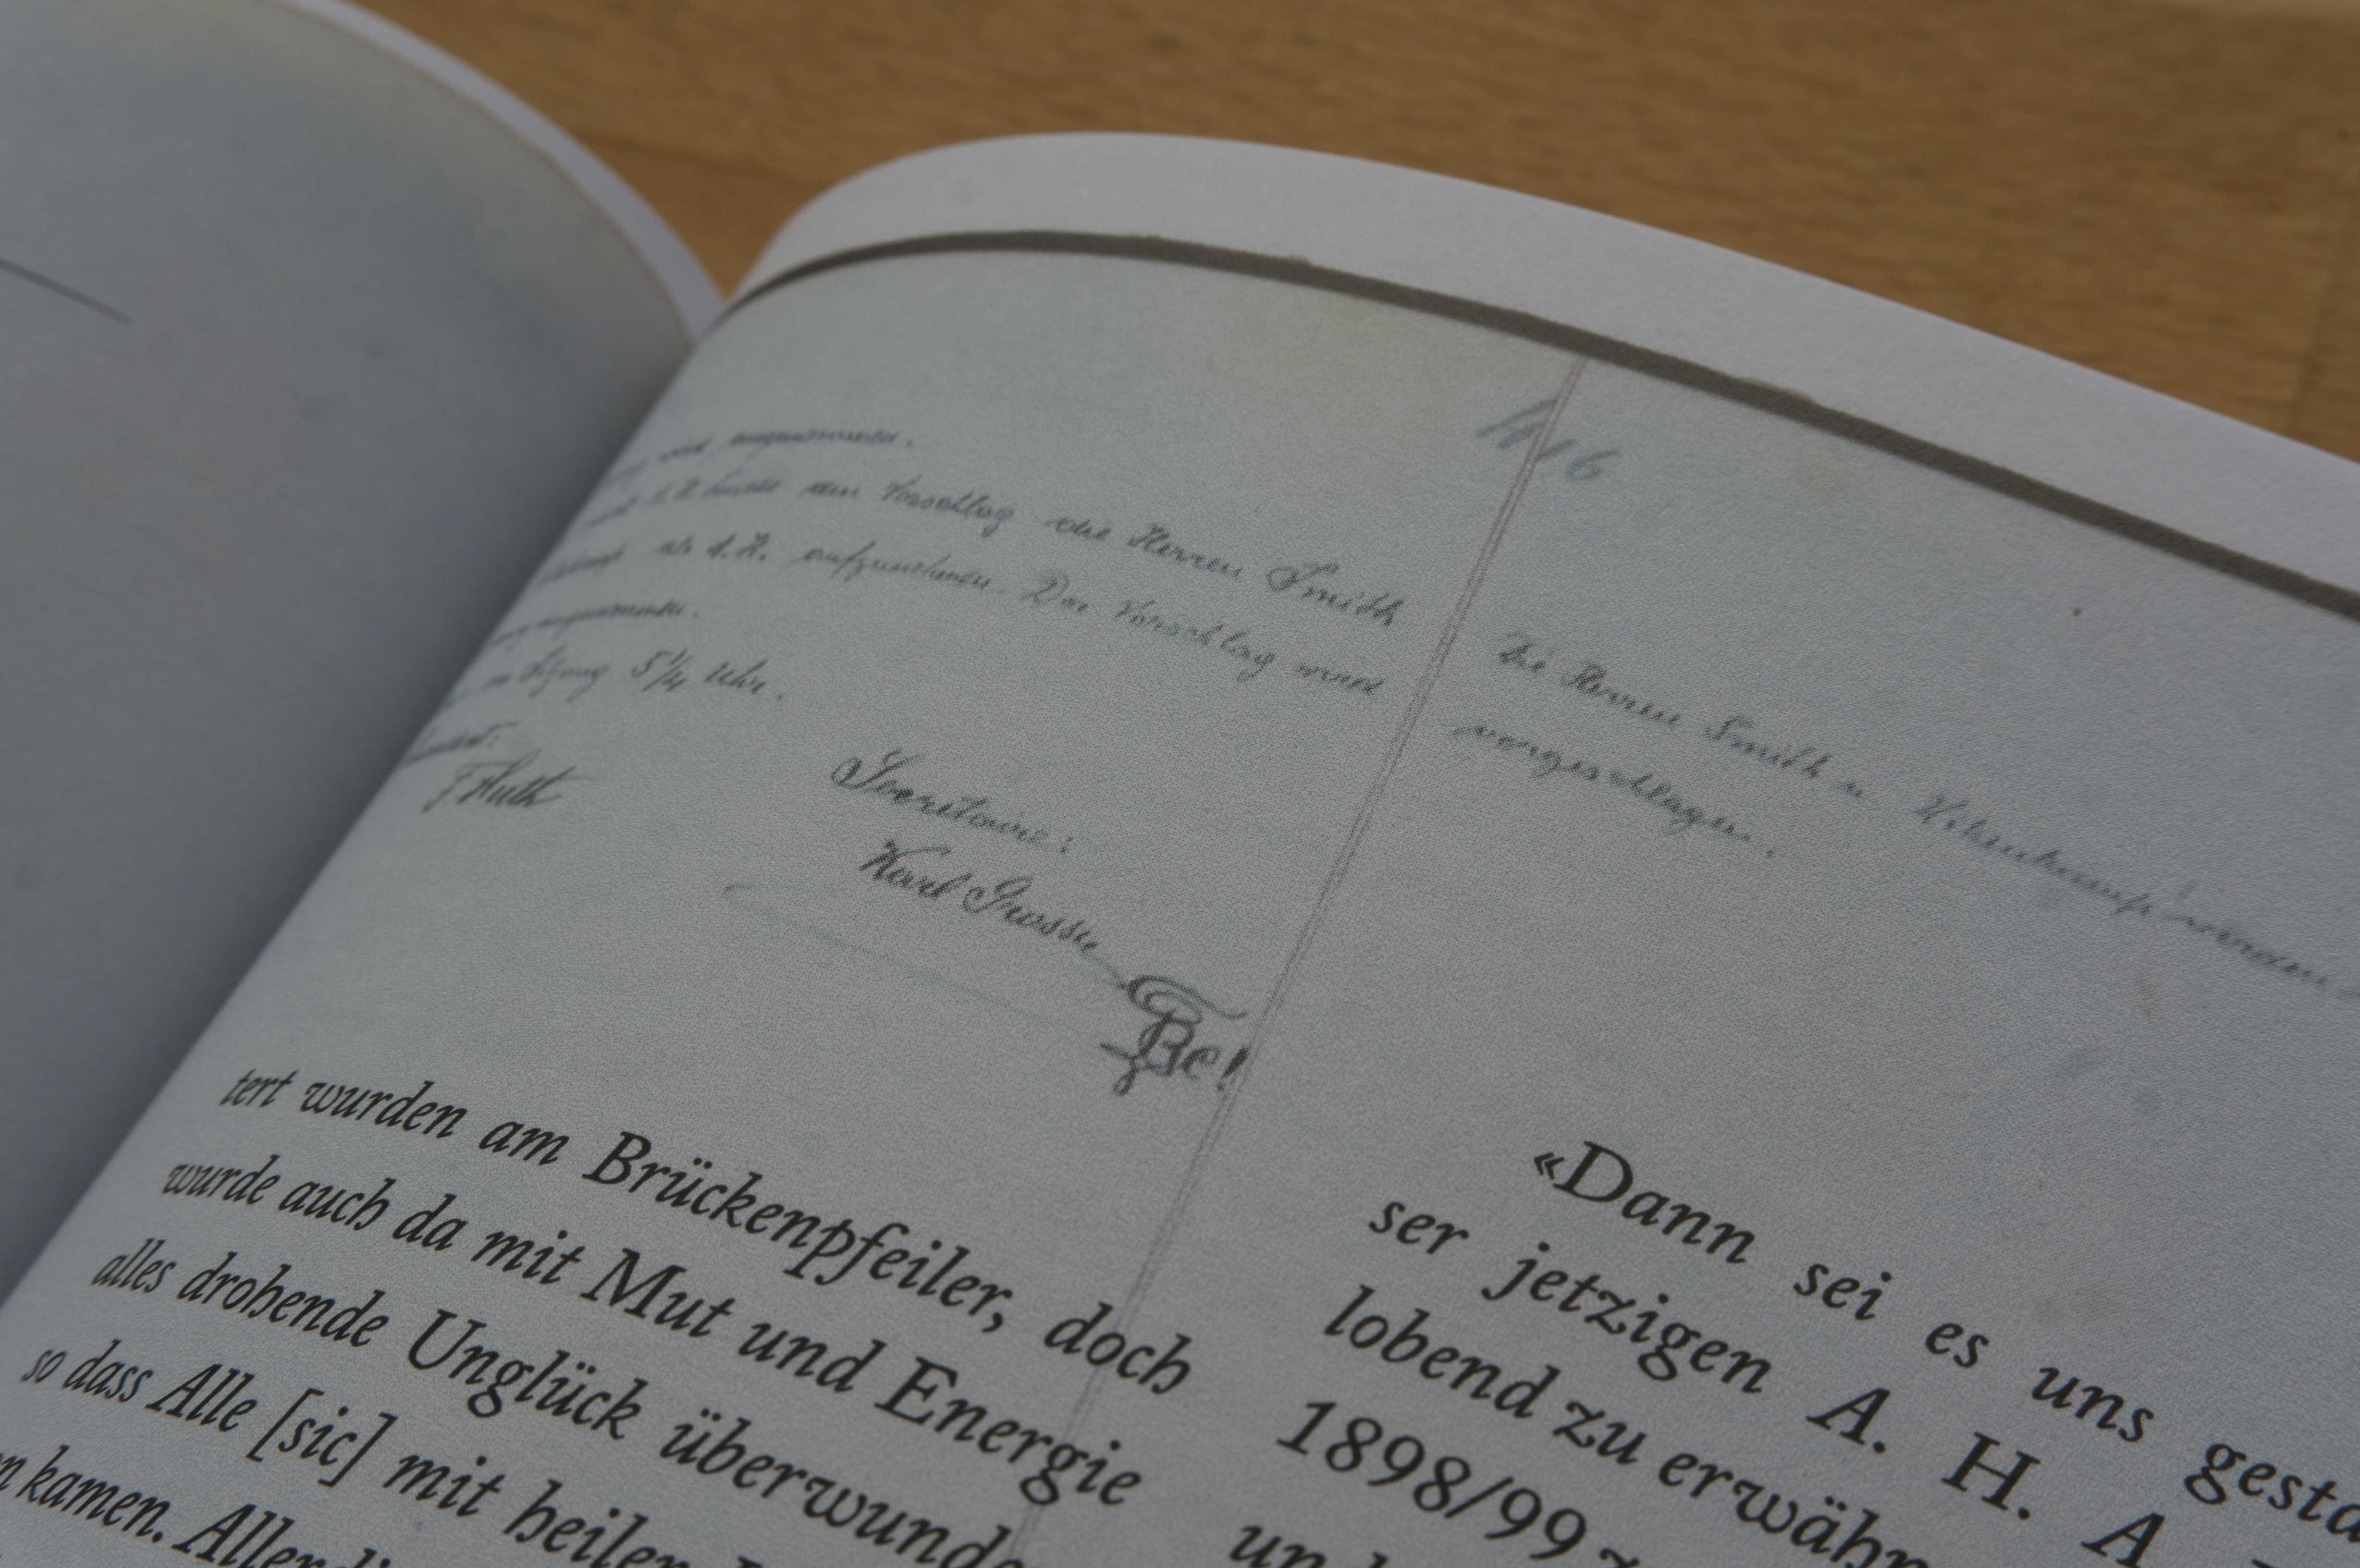 wird angenommen.
A. H. zum Vorschlag die Herren Smith
als A. H. aufzunehmen. Der Vorschlag wird
angenommen.
Sitzung 5 1/4 Uhr.
F Huth
Secretaire:
Karl Grosse
Die Herren Smith u.
vorgeschlagen.
tert wurden am Brückenpfeiler, doch
wurde auch da mit Mut und Energie
alles drohende Unglück überwunde
so dass Alle [sic] mit heilen
n kamen. Allerdi
«Dann sei es uns gesta
ser jetzigen A. H. A.
lobend zu erwähn
1898/99